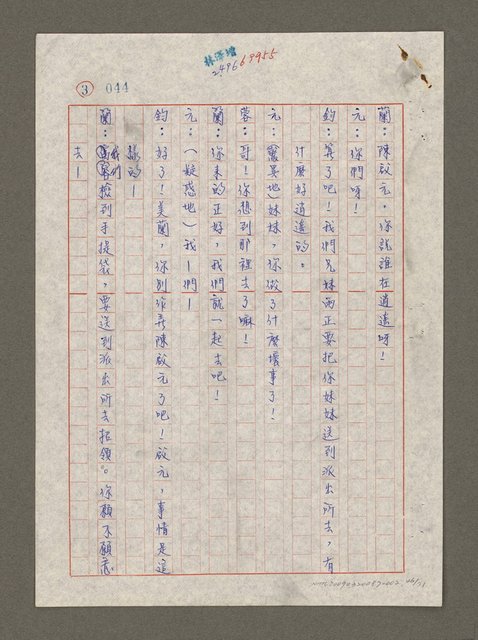 林澤增
249669955
3 044
蘭：陳啟元。你說誰在逍遙呀！
元：你們呀！
鈞：算了吧！我們兄妹兩正要把你妹妹送到派出所去，有
什麼好逍遙的。
元：（驚异地）妹妹，你做了什麼壞事了！
蓉：哥！你想到那裡去了嘛！
蘭：你来的正好，我們就一起去吧！
元：（疑惑地）我！們！
鈞：好了！美蘭，你別作弄陳啟元了吧！啟元，事情是這
樣的！
蘭：我們撿到手提袋，要送到派出所去招領。你願不願意
去！